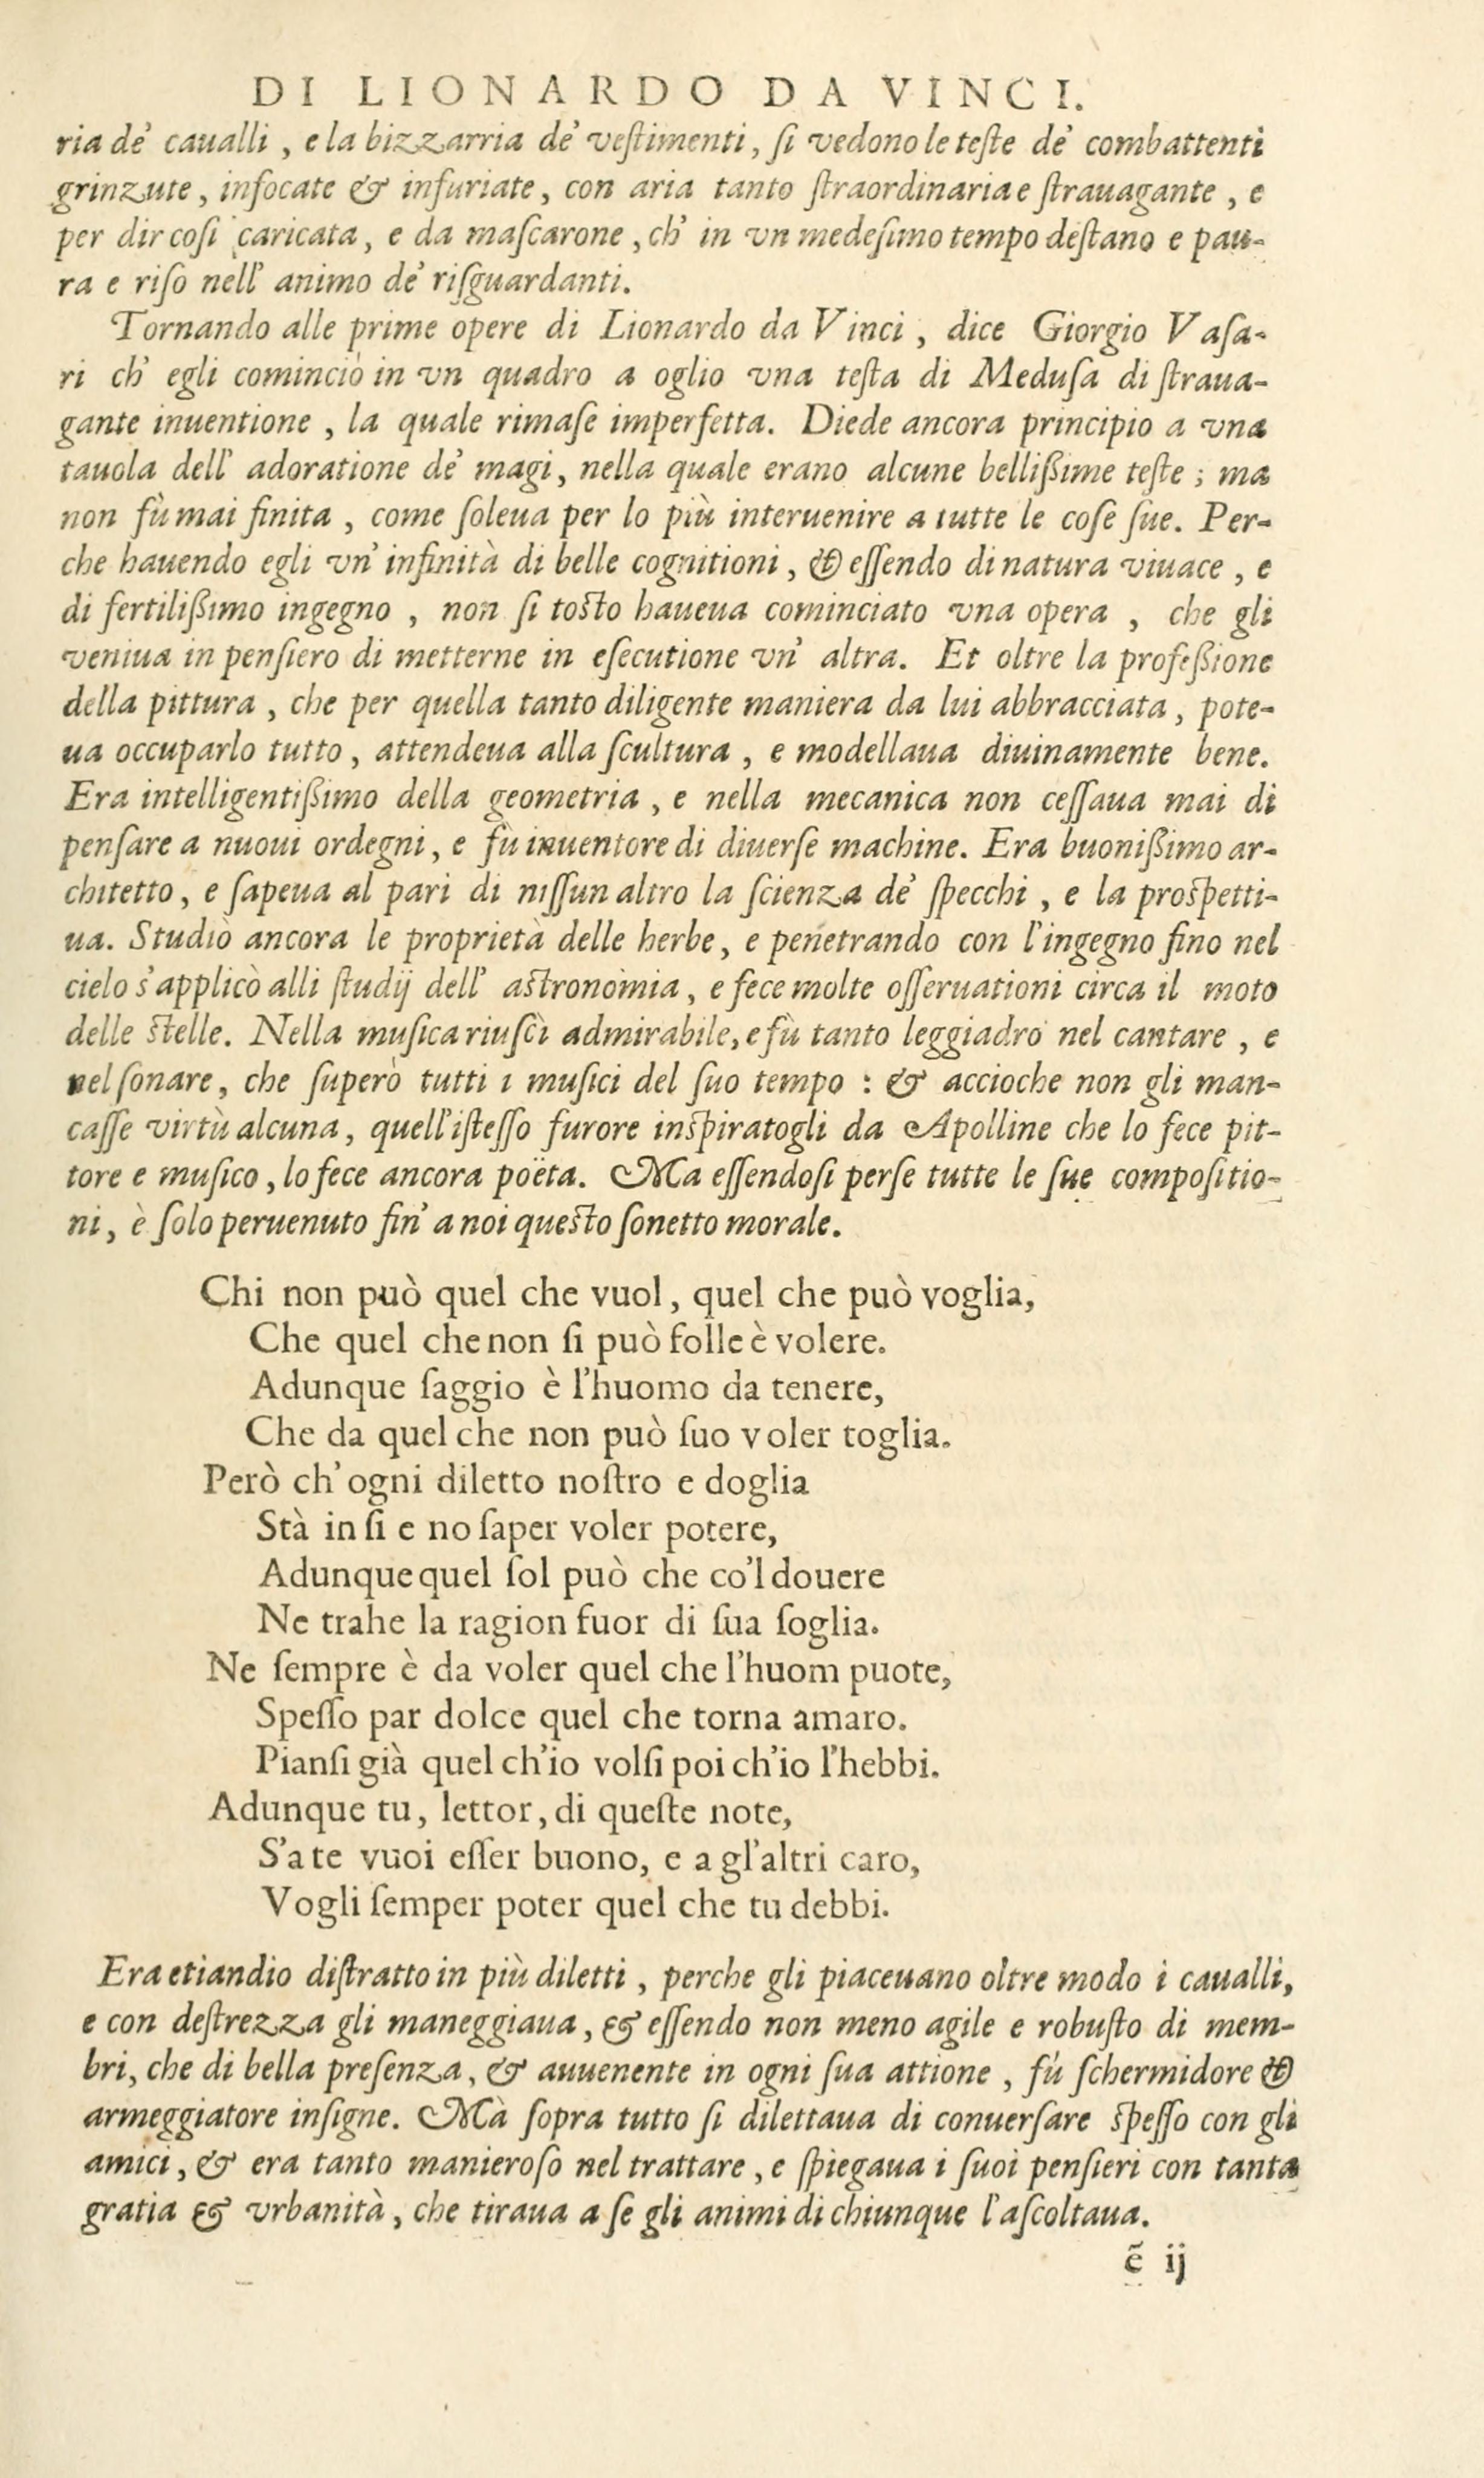 DI LIONARDO DA VINCI.
ria de' caualli, e la bizzarria de' veſtimenti, ſi vedono le teſte de' combattenti
grinzute, infocate & infuriate, con aria tanto ſtraordinaria e ſtrauagante, e
per dir coſi caricata, e da maſcarone, ch' in vn medeſimo tempo deſtano e pau-
ra e riſo nell' animo de' riſguardanti.
Tornando alle prime opere di Lionardo da Vinci, dice Giorgio Vaſa-
ri ch' egli cominciò in vn quadro a oglio vna teſta di Meduſa di ſtraua-
gante inuentione, la quale rimaſe imperfetta. Diede ancora principio a vna
tauola dell' adoratione de' magi, nella quale erano alcune belliſſime teſte; ma
non fù mai finita, come ſoleua per lo più interuenire a tutte le coſe ſue. Per-
che hauendo egli vn' infinità di belle cognitioni, & eſſendo di natura viuace, e
di fertiliſſimo ingegno, non ſi toſto haueua cominciato vna opera, che gli
veniua in penſiero di metterne in eſecutione vn' altra. Et oltre la profeſſione
della pittura, che per quella tanto diligente maniera da lui abbracciata, pote-
ua occuparlo tutto, attendeua alla ſcultura, e modellaua diuinamente bene.
Era intelligentiſſimo della geometria, e nella mecanica non ceſſaua mai di
penſare a nuoui ordegni, e fù inuentore di diuerſe machine. Era buoniſſimo ar-
chitetto, e ſapeua al pari di niſſun altro la ſcienza de' ſpecchi, e la proſpetti-
ua. Studiò ancora le proprietà delle herbe, e penetrando con l'ingegno fino nel
cielo s'applicò alli ſtudij dell' aſtronomia, e fece molte oſſeruationi circa il moto
delle ſtelle. Nella muſica riuſcì admirabile, e fù tanto leggiadro nel cantare, e
nel ſonare, che ſuperò tutti i muſici del ſuo tempo: & accioche non gli man-
caſſe virtù alcuna, quell'iſteſſo furore inſpiratogli da Apolline che lo fece pit-
tore e muſico, lo fece ancora poëta. Ma eſſendoſi perſe tutte le ſue compoſitio-
ni, è ſolo peruenuto fin' a noi queſto ſonetto morale.
Chi non può quel che vuol, quel che può voglia,
Che quel che non ſi può folle è volere.
Adunque ſaggio è l'huomo da tenere,
Che da quel che non può ſuo voler toglia.
Però ch'ogni diletto noſtro e doglia
Stà in ſi e no ſaper voler potere,
Adunque quel ſol può che co'l douere
Ne trahe la ragion fuor di ſua ſoglia.
Ne ſempre è da voler quel che l'huom puote,
Speſſo par dolce quel che torna amaro.
Pianſi già quel ch'io volſi poi ch'io l'hebbi.
Adunque tu, lettor, di queſte note,
S'a te vuoi eſſer buono, e a gl'altri caro,
Vogli ſemper poter quel che tu debbi.
Era etiandio diſtratto in più diletti, perche gli piaceuano oltre modo i caualli,
e con deſtrezza gli maneggiaua, & eſſendo non meno agile e robuſto di mem-
bri, che di bella preſenza, & auuenente in ogni ſua attione, fù ſchermidore &
armeggiatore inſigne. Mà ſopra tutto ſi dilettaua di conuerſare ſpeſſo con gli
amici, & era tanto manieroſo nel trattare, e ſpiegaua i ſuoi penſieri con tanta
gratia & vrbanità, che tiraua a ſe gli animi di chiunque l'aſcoltaua.
ẽ ij